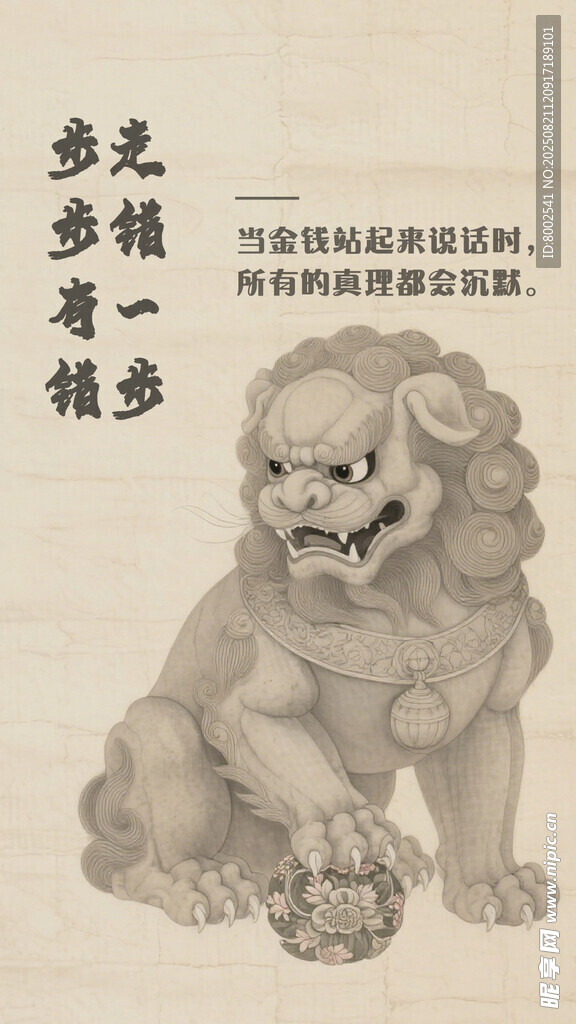 走错一步
步步有错
当金钱站起来说话时，
所有的真理都会沉默。
ID:8002541 NO:20250821120917189101
昵享网 www.nipic.cn